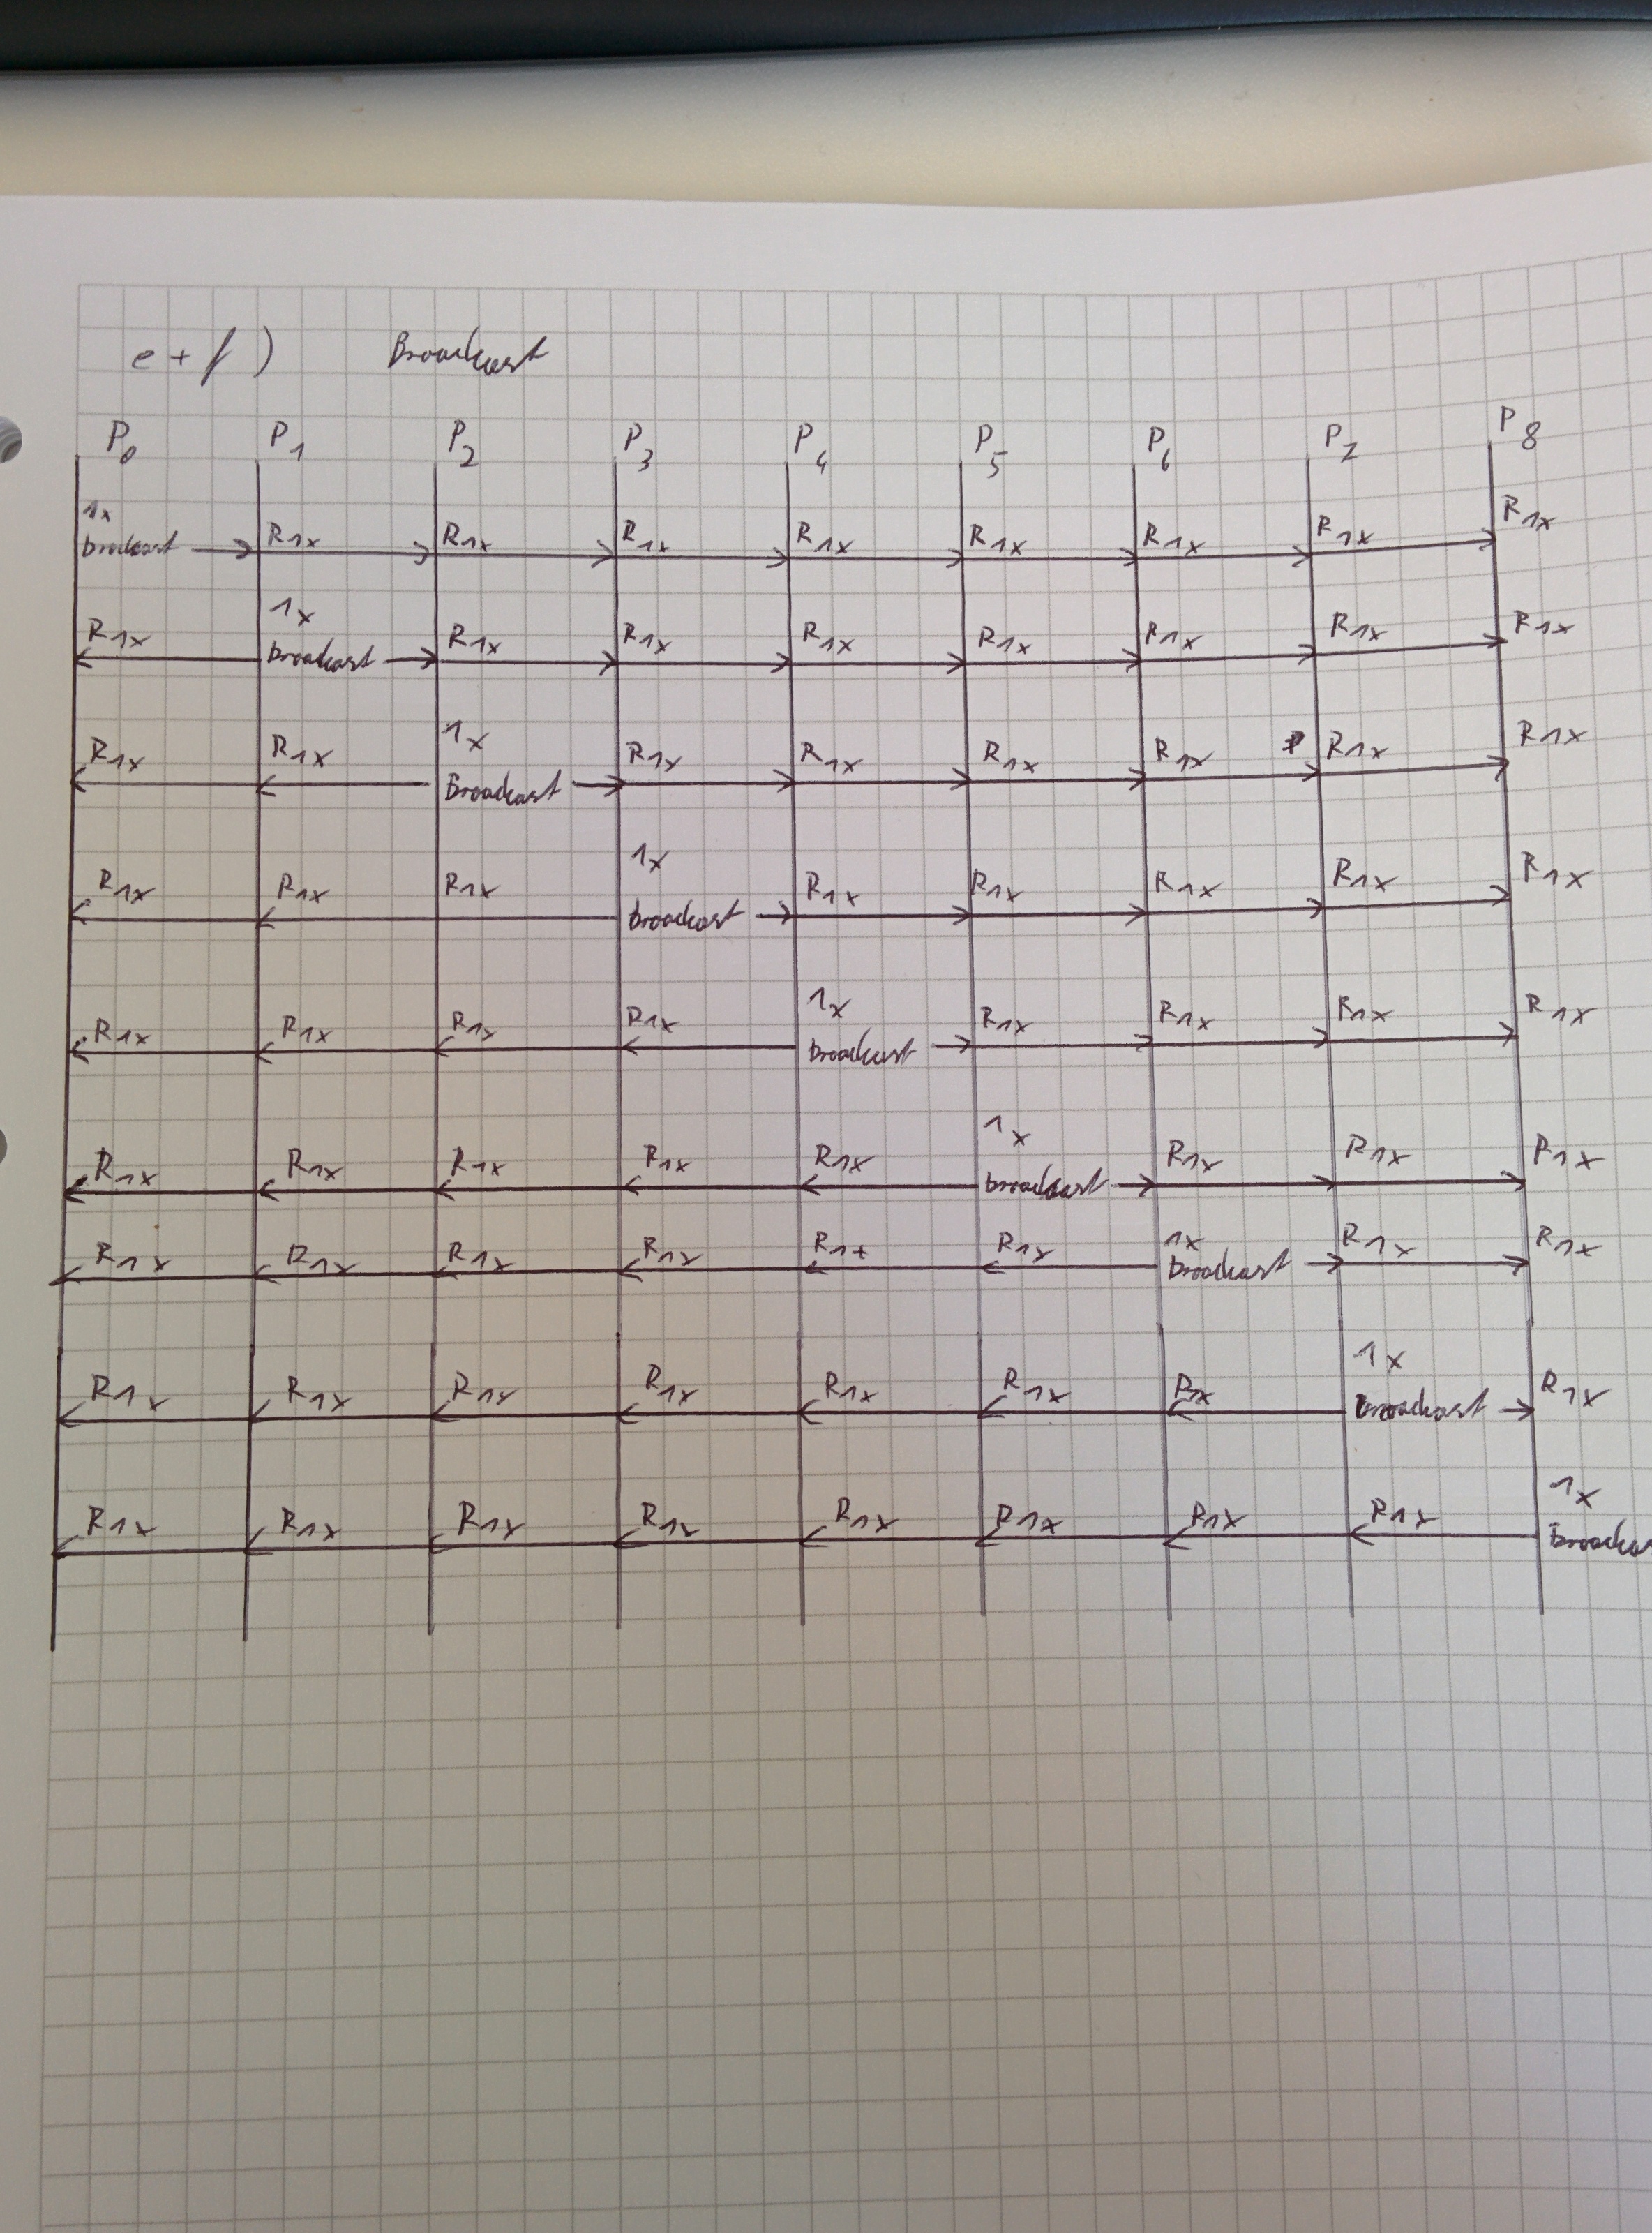 e + f ) Broadcast
P0 P1 P2 P3 P4 P5 P6 P7 P8
1x
brodcast R1x R1x R1x R1x R1x R1x R1x R1x
1x
R1x broadcast R1x R1x R1x R1x R1x R1x R1x
1x
R1x R1x Broadcast R1x R1x R1x R1x R1x R1x
1x
R1x R1x R1x broadcast R1x R1x R1x R1x R1x
1x
R1x R1x R1x R1x broadcast R1x R1x R1x R1x
1x
R1x R1x R1x R1x R1x broadcast R1x R1x R1x
1x
R1x R1x R1x R1x R1x R1x broadcast R1x R1x
1x
R1x R1x R1x R1x R1x R1x Rx broadcast R1x
1x
R1x R1x R1x R1x R1x R1x R1x R1x Broadca